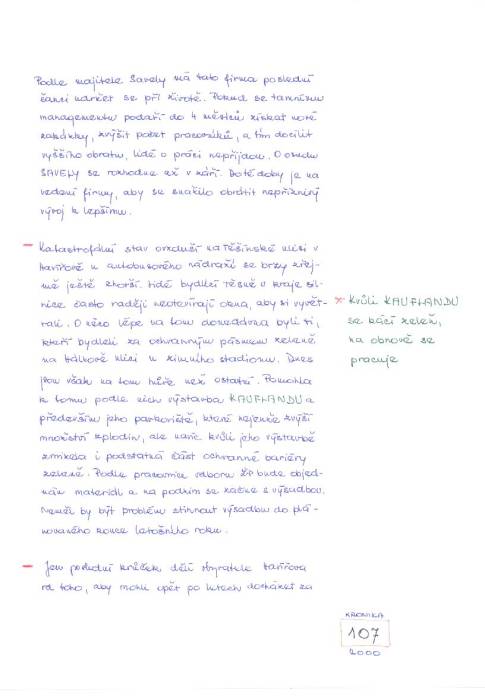 Podle majitele Savely má tato firma poslední
šanci udržet se při životě. Pokud se tamnímu
managementu podaří do 4 měsíců získat nové
zakázky, zvýšit počet pracovníků, a tím docílit
vyššího obratu, lidé o práci nepřijdou. O osudu
SAVELY se rozhodne až v září. Do té doby je na
vedení firmy, aby se snažilo obrátit nepříznivý
vývoj k lepšímu.
- Katastrofální stav ovzduší na Těšínské ulici v
Havířově u autobusového nádraží se brzy zřej-
mě ještě zhorší. Lidé bydlící těsně v kraje sil-
nice často raději neotevírají okna, aby si vyvět-
rali. O něco lépe na tom donedávna byli ti,
kteří bydleli za ochranným pásmem zeleně
na Hálkově ulici u zimního stadionu. Dnes
jsou však na tom hůře než ostatní. Pomohla
k tomu podle nich výstavba KAUFLANDU a
především jeho parkoviště, které nejenže zvýší
množství zplodin, ale navíc kvůli jeho výstavbě
zmizela i podstatná část ochranné bariéry
zeleně. Podle pracovnice odboru ŽP bude objed-
nán materiál a na podzim se začne s výsadbou.
Neměl by být problém stihnout výsadbu do plá-
novaného konce letošního roku.
- Jen poslední krůček dělí obyvatele Havířova
od toho, aby mohli opět po letech docházet za
× Kvůli KAUFLANDU
se kácí zeleň,
na obnově se
pracuje
KRONIKA
107
2000